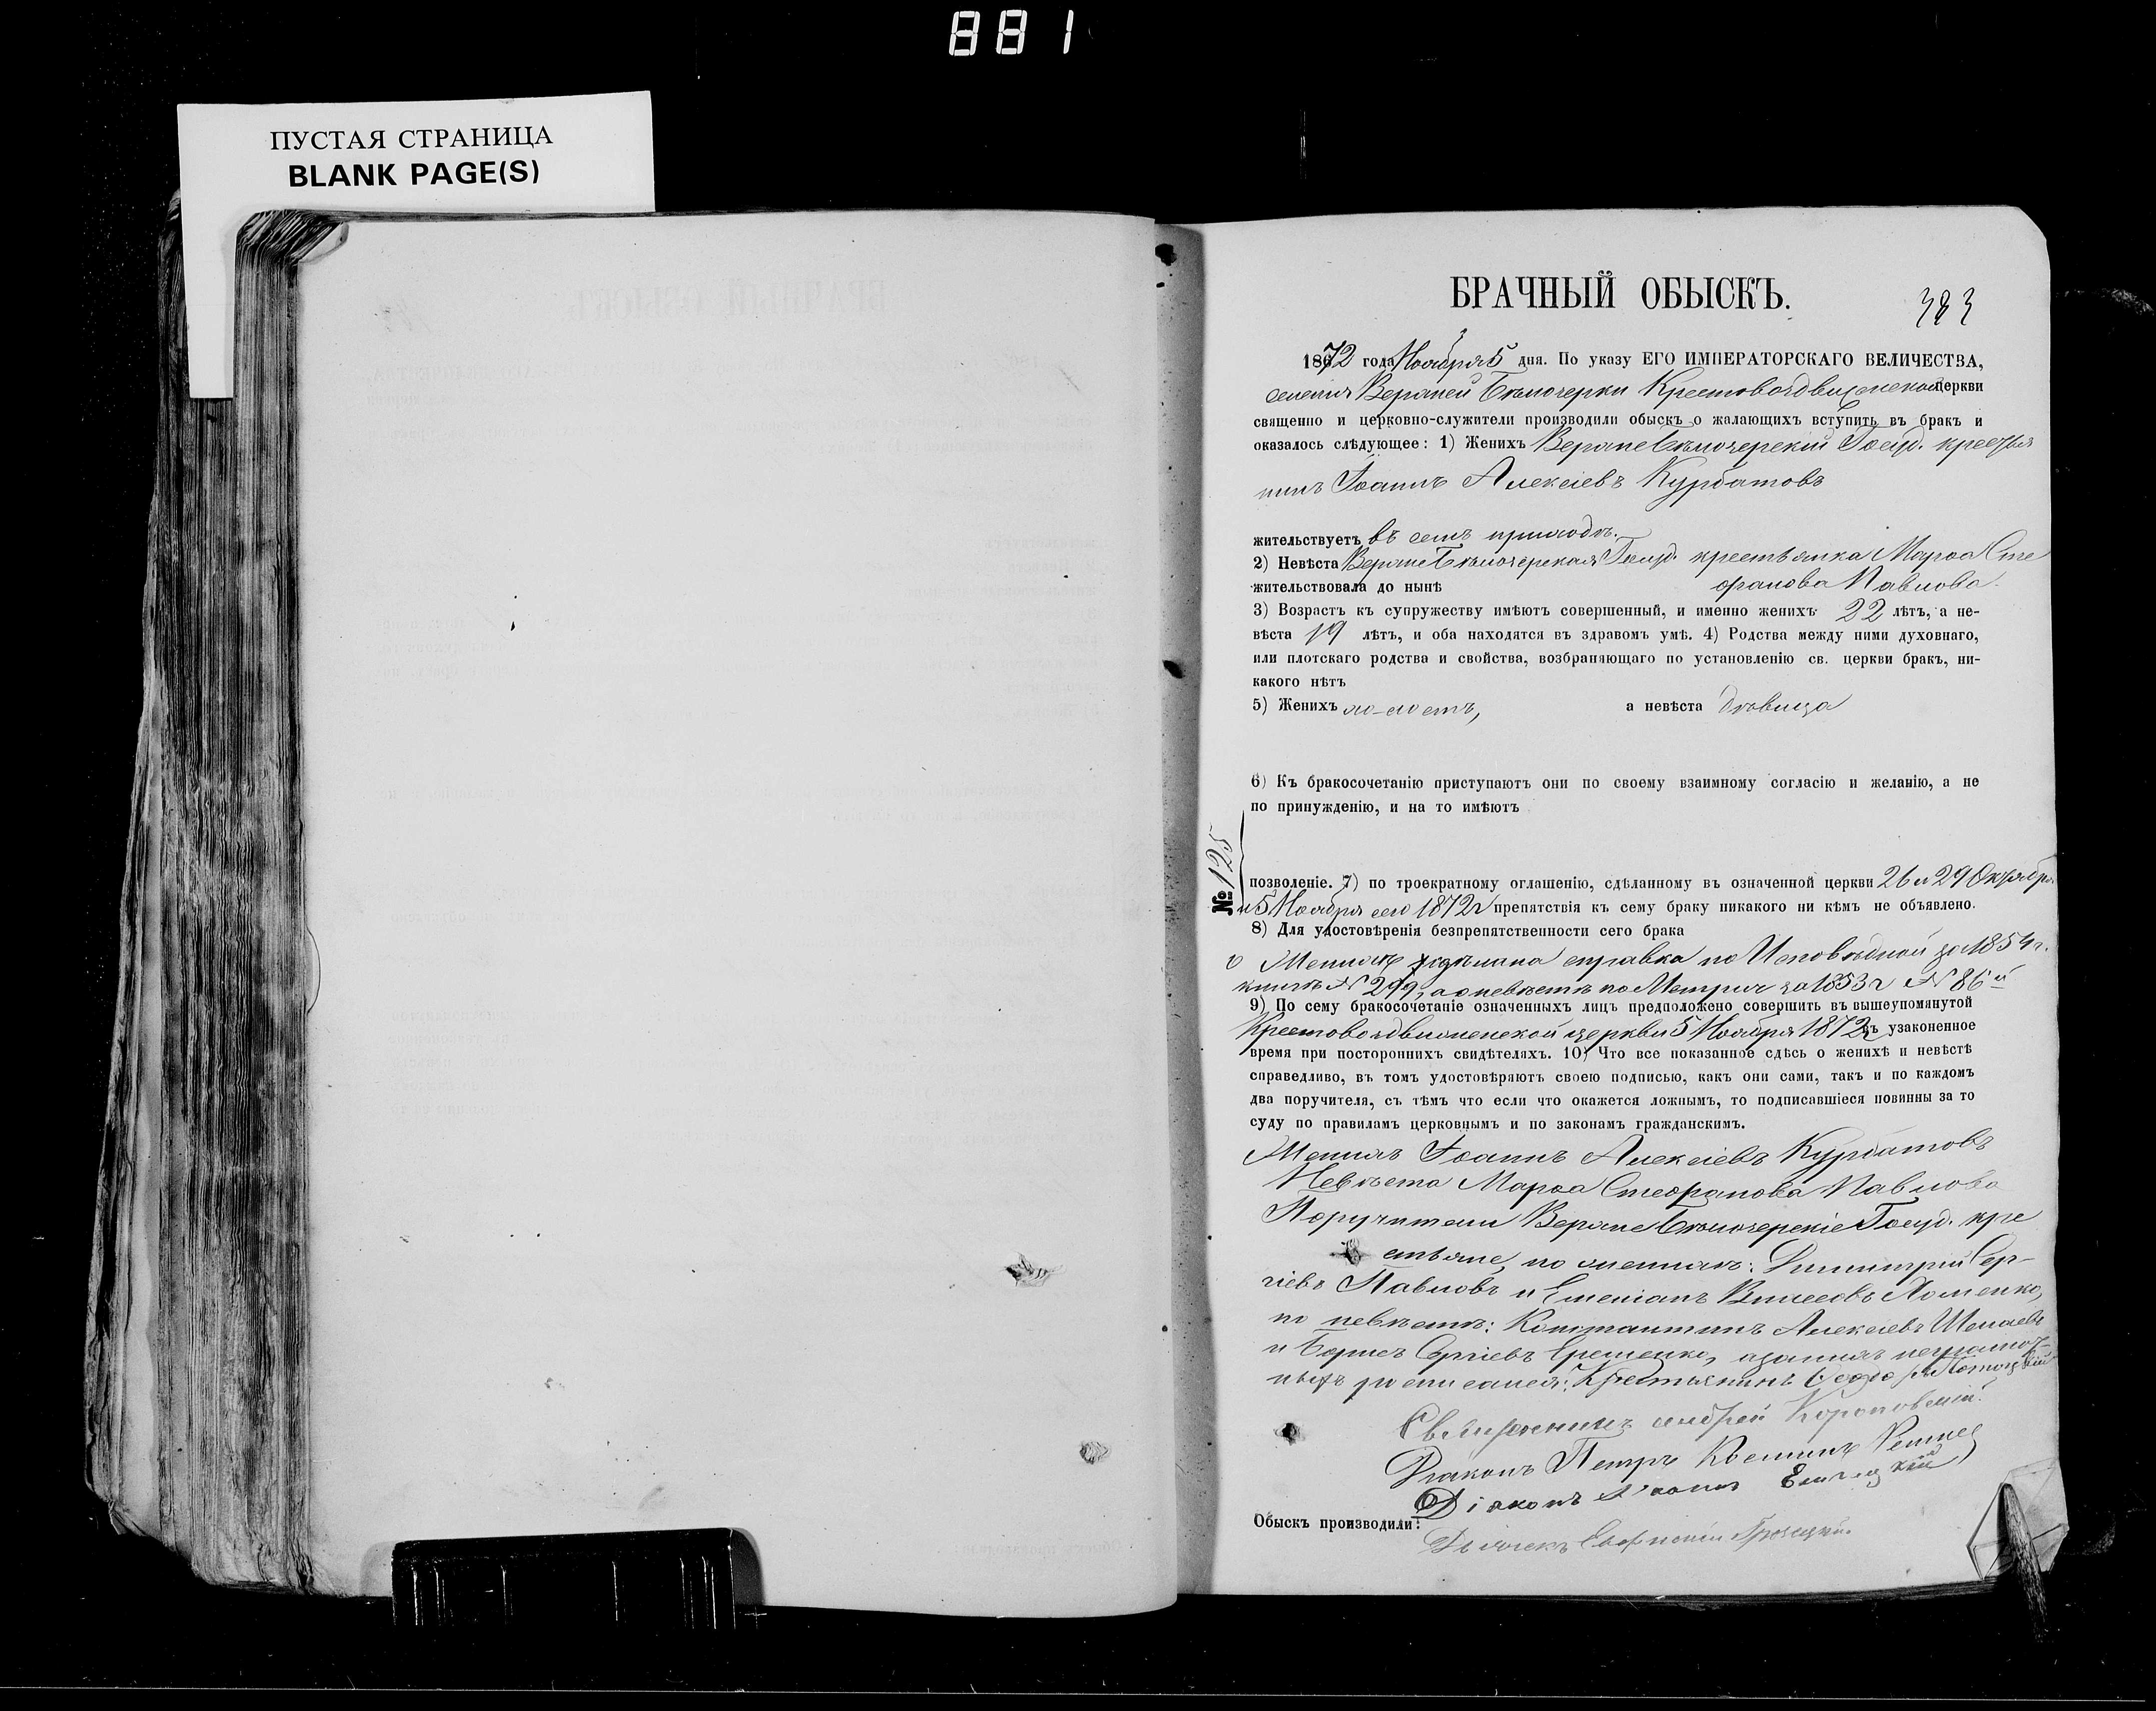 881
ПУСТАЯ СТРАНИЦА
BLANK PAGE(S)
БРАЧНЫЙ ОБЫСКЪ.
383
1872 года Ноября 5 дня. По указу ЕГО ИМПЕРАТОРСКАГО ВЕЛИЧЕСТВА,
селенія Верхней Бѣлозерки Крестовоздвиженской церкви
священно и церковно-служители производили обыскъ о жалающихъ вступить въ бракъ и
оказалось слѣдующее: 1) Женихъ Верхнебѣлозерскій Госуд. крестья
нинъ Іоаннъ Алексіевъ Курбатовъ
жительствуетъ въ семъ приходѣ.
2) Невѣста Верхнебѣлозерская Госуд. крестьянка Марѳа Сте
жительствовала до нынѣ фанова Павлова.
3) Возрастъ къ супружеству имѣютъ совершенный, и именно женихъ 22 лѣтъ, а не-
вѣста 19 лѣтъ, и оба находятся въ здравомъ умѣ. 4) Родства между ними духовнаго,
или плотскаго родства и свойства, возбраняющаго по установленію св. церкви бракъ, ни-
какого нѣтъ
5) Женихъ холостъ, а невѣста дѣвица
6) Къ бракосочетанію приступаютъ они по своему взаимному согласію и желанію, а не
по принужденію, и на то имѣютъ
№ 125
позволеніе. 7) по троекратному оглашенію, сдѣланному въ означенной церкви 26 и 29 Октября
и 5 Ноября сего 1872 г препятствія къ сему браку никакого ни кѣмъ не объявлено.
8) Для удостовѣренія безпрепятственности сего брака
о Женихѣ сдѣлана справка по Исповѣдной за 1854 г.
книгѣ № 299, а о невѣстѣ по Метрич за 1853 г № 86й
9) По сему бракосочетаніе означенныхъ лицъ предположено совершить въ вышеупомянутой
Крестовоздвиженской церкви 5 Ноября 1872 г въ узаконенное
время при постороннихъ свидѣтеляхъ. 10) Что все показанное сдѣсь о женихѣ и невѣстѣ
справедливо, въ томъ удостовѣряютъ своею подписью, какъ они сами, такъ и по каждомъ
два поручителя, съ тѣмъ что если что окажется ложнымъ, то подписавшіеся повинны за то
суду по правиламъ церковнымъ и по законамъ гражданскимъ.
Женихъ Іоаннъ Алексіевъ Курбатовъ
Невѣста Марѳа Стефанова Павлова
Поручители Верхнебѣлозерскіе Госуд. кре
стьяне, по женихѣ: Димитрій Сер-
гіевъ Павловъ и Емеліанъ Власовъ Хоменко,
по невѣстѣ: Константинъ Алексіевъ
и Борисъ Сергіевъ Ерешенко, а за нихъ неграмот
ныхъ росписался: Крестьянинъ
Священникъ Андрей Короповскій.
Діаконъ Петръ Косминъ
Діаконъ
Обыскъ производили:
Дьячекъ